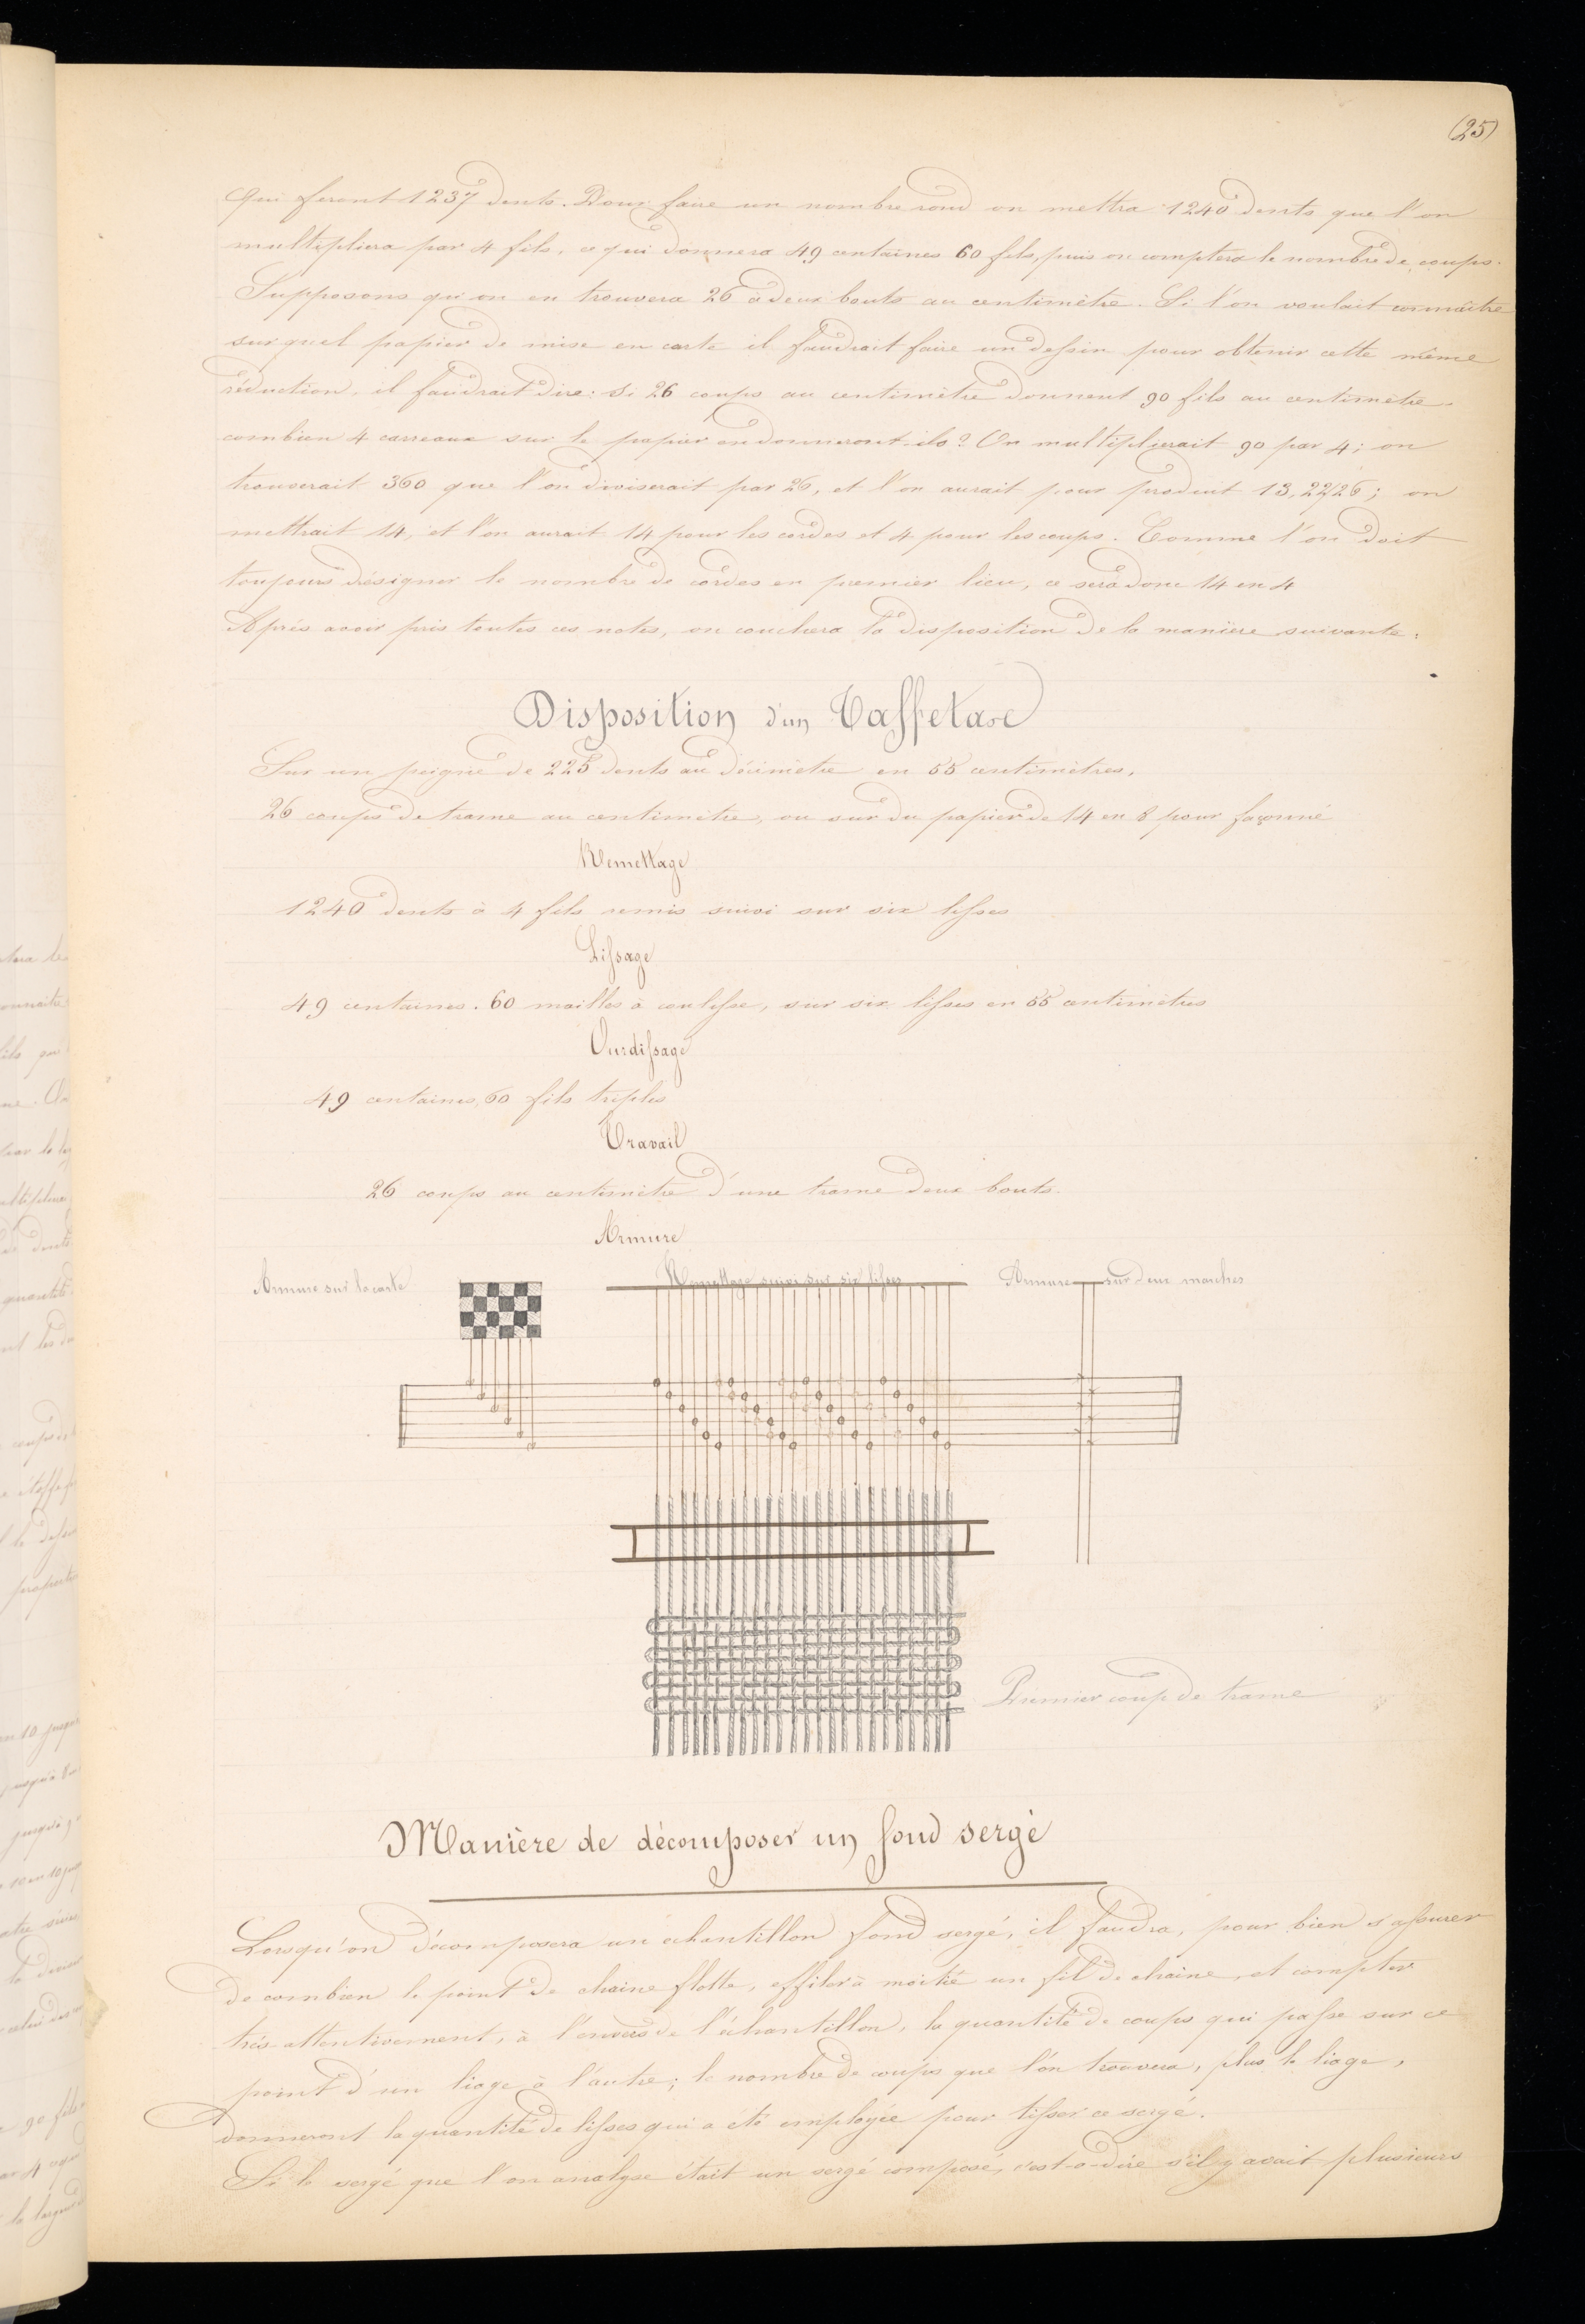 (25)
Qui feront 1237 dents. Pour faire un nombre rond on mettra 1240 dents que l'on
multipliera par 4 fils, ce qui donnera 49 centaines 60 fils, puis on comptera le nombre de coups.
Supposons qu'on en trouvera 26 à deux bouts au centimètre. Si l'on voulait connaître
sur quel papier de mise en carte il faudrait faire un dessin pour obtenir cette même
réduction, il faudrait dire: si 26 coups au centimètre donnent 90 fils au centimètre
combien 4 carreaux sur le papier en donneront-ils? On multiplierait 90 par 4; on
trouverait 360 que l'on diviserait par 26, et l'on aurait pour produit 13,22/26; on
mettrait 14, et l'on aurait 14 pour les cordes et 4 pour les coups. Comme l'on doit
toujours désigner le nombre de cordes en premier lieu, ce sera donc 14 en 4
Après avoir pris toutes ces notes, on couchera la disposition de la manière suivante:
Disposition d'un Taffetas
Sur un peigne de 225 dents au décimètre en 55 centimètres,
26 coups de trame au centimètre, ou sur du papier de 14 en 8 pour façonné
Remettage
1240 dents à 4 fils remis suivi sur six lisses
Lissage
49 centaines. 60 mailles à coulisse, sur six lisses en 55 centimètres
Ourdissage
49 centaines, 60 fils triples
Travail
26 coups au centimètre d'une trame deux bouts.
Armure
Armure sur la carte
Remettage suivi sur six lisses
Armure sur deux marches
Premier coup de trame
Manière de décomposer un fond sergé
Lorsqu'on décomposera un échantillon fond sergé, il faudra, pour bien s'assurer
de combien le point de chaine flotte, effiler à moitié un fil de chaine, et compter
très-attentivement, à l'envers de l'échantillon, la quantité de coups qui passe sur ce
point d'un liage à l'autre; le nombre de coups que l'on trouvera, plus le liage,
donneront la quantité de lisses qui a été employée pour tisser ce sergé.
Si le sergé que l'on analyse était un sergé composé, c'est-à-dire s'il y avait plusieurs